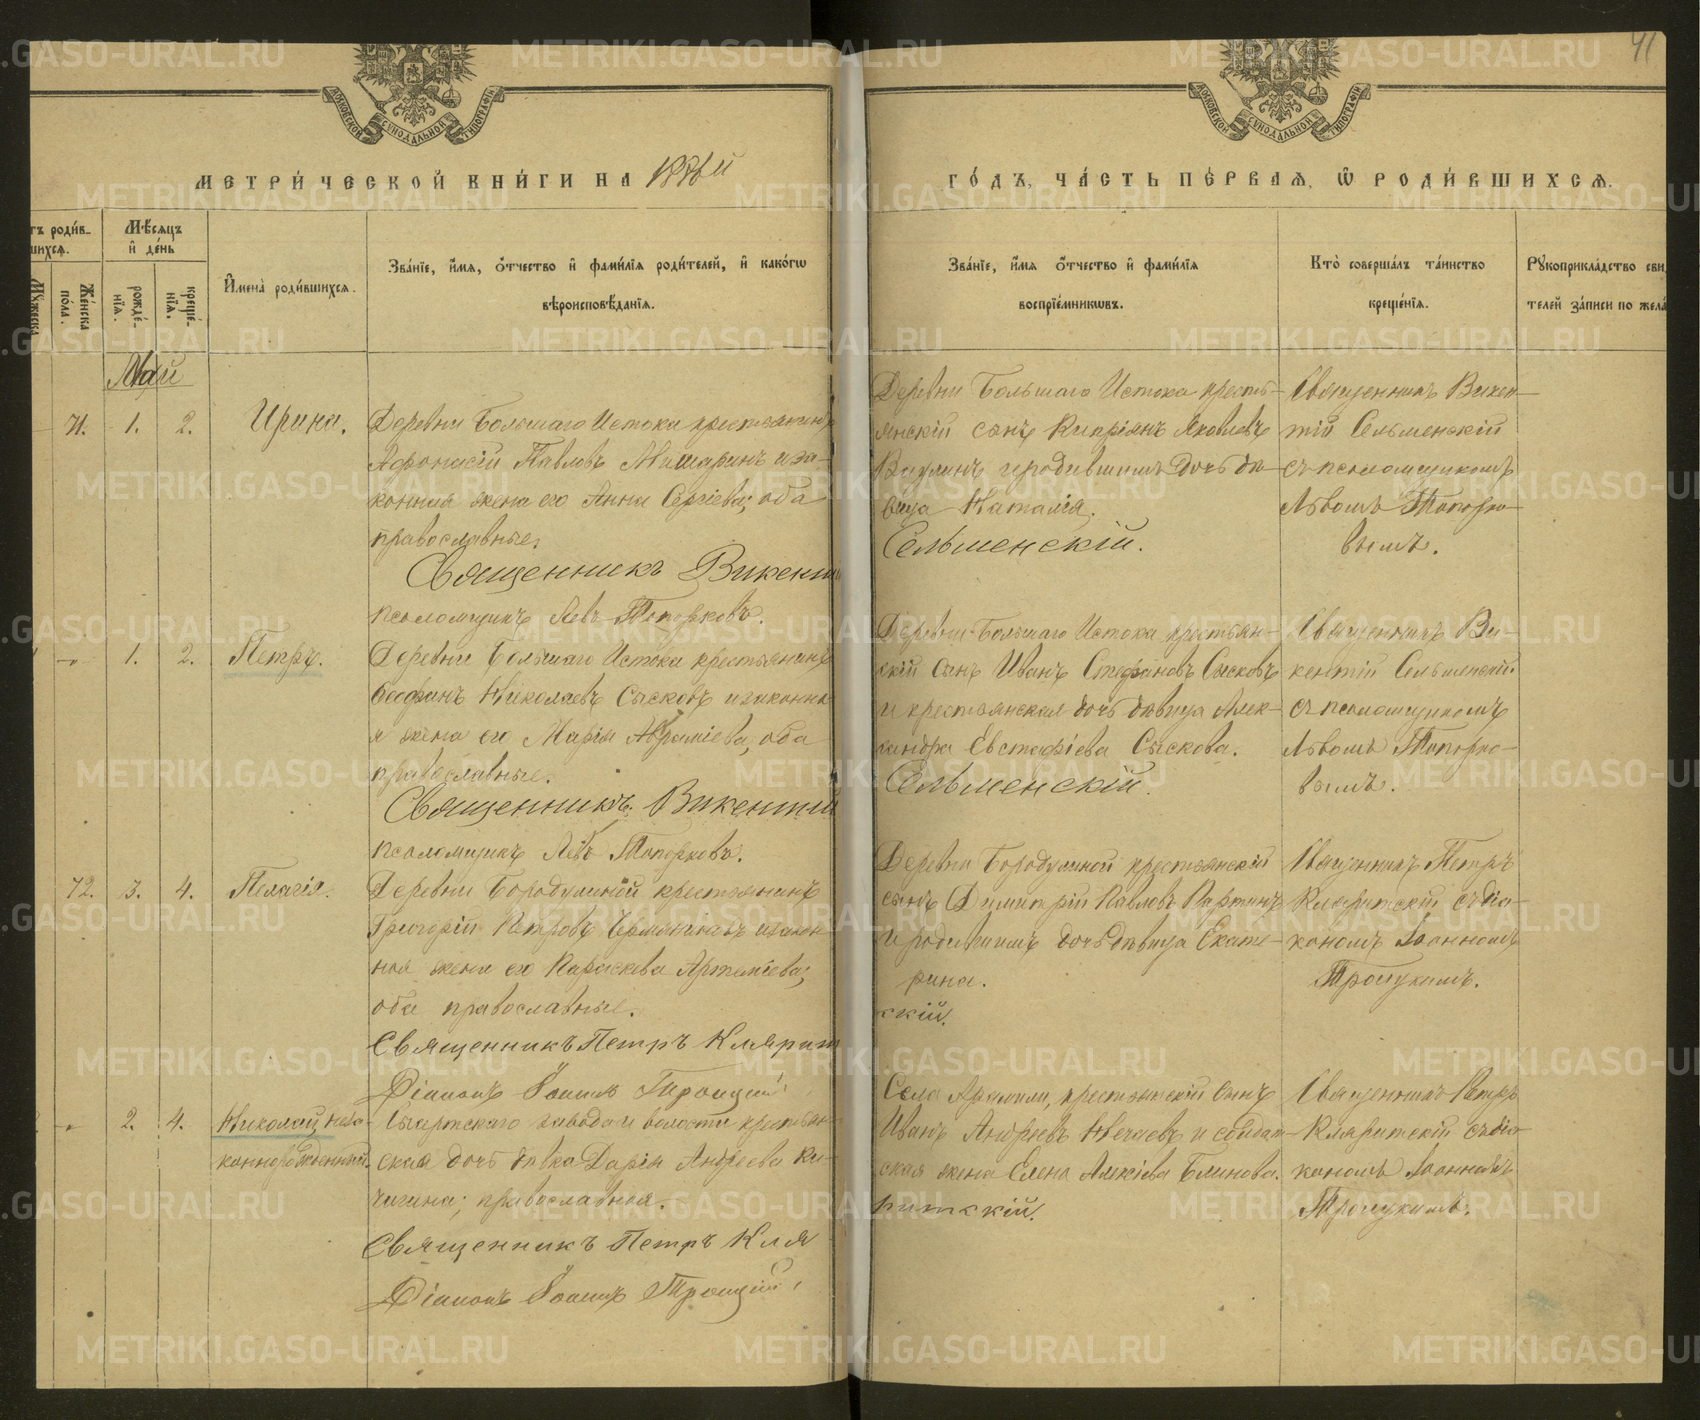 41
МОСКОВСКОЙ СѴНОДАЛЬНОЙ ТИПОГРАФІИ
МОСКОВСКОЙ СѴНОДАЛЬНОЙ ТИПОГРАФІИ
МЕТРИ́ЧЕСКОЙ КНИ́ГИ НА 1886й
ГО́ДЪ, ЧА́СТЬ ПЕ́РВАЯ, Ѿ РОДИ́ВШИХСЯ.
тъ роди́в-
шихся.
Мѣ́сяцъ
и де́нь
Му́жеска
Же́нска
по́ла.
рожде́-
нїя.
креще́-
нїя.
И҆мена̀ роди́вшихся.
Зва́нїе, и҆́мя, ѻ҆́тчество и҆ фами́лїя роди́телей, и҆ како́гѡ
вѣроисповѣ́данїя.
Зва́нїе, и҆́мя ѻ҆́тчество и҆ фами́лїя
воспрїе́мникѡвъ.
Кто̀ соверша́лъ та́инство
креще́нїя.
Рꙋкоприкла́дство сви
телей за́писи по жела
Май
71. 1. 2. Ирина.
Деревни Большаго Истока крестьянинъ
Афонасій Павловъ Мишаринъ и за-
конная жена его Анна Сергіева, оба
православные.
Священникъ Викенті
псаломщикъ Левъ Топорковъ.
Деревни Большаго Истока кресть-
янскій сынъ Кипріянъ Яковлевъ
дочь дѣ-
вица Наталія.
Сельменскій.
Священникъ Викен-
тій Сельменскій
съ псаломщикомъ
Львомъ Топорко-
вымъ.
-"- 1. 2. Петръ.
Деревни Большаго Истока крестьянинъ
Ѳеофанъ Николаевъ Сысковъ и законна-
я жена его Марія Авраміева, оба
православные.
Священникъ Викентий
псаломщикъ Левъ Топорковъ.
Деревни Большаго Истока крестьян-
скій сынъ Иванъ Стефановъ Сысковъ
и крестьянская дочь дѣвица Алек-
сандра Евстафіева Сыскова.
Сельменскій.
Священникъ Ви-
кентій Сельменскій
съ псаломщикомъ
Львомъ Топорко-
вымъ.
72. 3. 4. Пелагія.
Деревни Бородулиной крестьянинъ
Григорій Петровъ и закон-
ная жена его Параскева Артеміева;
оба православные.
Священникъ Петръ Кляритс
Діаконъ Іоаннъ Троицкій
Деревни Бородулиной крестьянскій
сынъ Димитрій Павловъ
и родившимъ дочь дѣвица Екате-
рина.
скій.
Священникъ Петръ
Кляритскій съ діа-
кономъ Іоанномъ
Троицкимъ.
-"- 2. 4. Николай неза-
коннорожденный.
Сысертскаго завода и волости крестьян-
ская дочь дѣвка Дарія Андреева Ки-
чигина; православная.
Священникъ Петръ Кля
Діаконъ Іоаннъ Троицкій
Села Арамили, крестьянскій сынъ
Иванъ Андреевъ Нечаевъ и солдат-
ская жена Елена Алексіева Блинова.
ритскій.
Священникъ Петръ
Кляритскій съ діа-
кономъ Іоанномъ
Троицкимъ.
METRIKI.GASO-URAL.RU